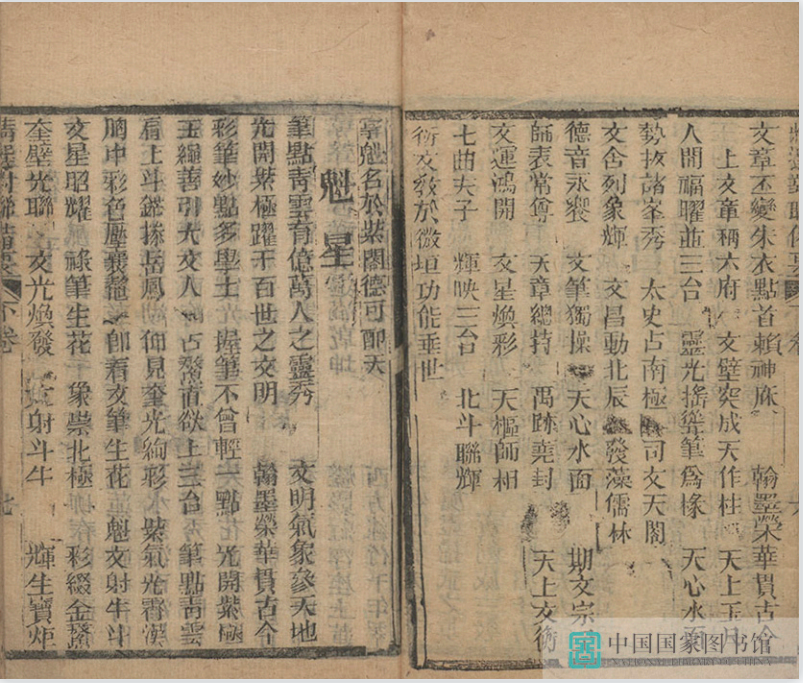 文章丕變朱衣點首賴神庥 翰墨榮華貫古今
上文章稱六府 文壁突成天作柱 天上玉
人間福曜並三台 靈光搖筆筆為椽 天心水面
勢拔諸峯秀 太史占南極 司文天閣
文含列象輝 文昌動北辰 發藻儒林
德音永襲 文筆獨操 天心水面 期文宗
師表常尊 天章總持 禹跡堯封 天上文衡
文運鴻開 文星煥彩 天樞師相
七曲夫子 輝映三台 北斗聯輝
衡文教於微垣功能垂世
掌魁名於紫閣德可配天
魁星
筆點青雲有億萬人之靈秀 文明氣象參天地
光開紫極躍千百世之文明 翰墨榮華貫古今
彩筆妙點多學士 握筆不曾輕一點 光開紫極
玉繩善引大文人 占鰲直欲上三台 筆點青雲
肩上斗 仰見奎光絢彩 紫氣光霄漢
胸中彩色壓 即看文筆生花 魁文射牛斗
文星昭耀 綵筆生花 象崇北極 彩綴金鰲
奎壁光聯 文光煥發 文射斗牛 輝生寶炬
下卷
七
中国国家图书馆